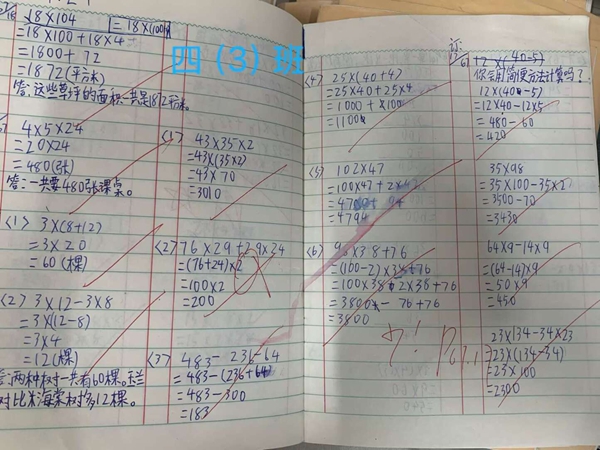 18×104
=18×(100+
=18×100+18×4
=1800+72
=1872(平方米)
答:这些草坪的面积一共是1872平方米。
4×5×24
=20×24
=480(张)
答:一共要480张课桌。
(1) 3×(8+12)
=3×20
=60(棵)
(2) 3×12-3×8
=3×(12-8)
=3×4
=12(棵)
答:两种树一共有60棵。玉兰
对比海棠树多12棵。
四(3)班
(1) 43×35×2
=43×(35×2)
=43×70
=3010
(2) 76×29+29×24
=(76+24)×2
=100×2
=200
(3) 483-236-64
=483-(236+64
=483-300
=183
(4) 25×(40+4)
=25×40+25×4
=1000+100
=1100
(5) 102×47
=100×47+2×47
=4700+94
=4794
(6) 98×38+76
=(100-2)×38+76
=100×38-2×38+76
=3800-76+76
=3800
12×(40-5)
你会用简便方法计算吗?
12×(40-5)
=12×40-12×5
=480-60
=420
35×98
=35×100-35×2
=3500-70
=3430
64×9-14×9
=(64-14)×9
=50×9
=450
23×134-34×23
=23×(134-34)
=23×100
=2300